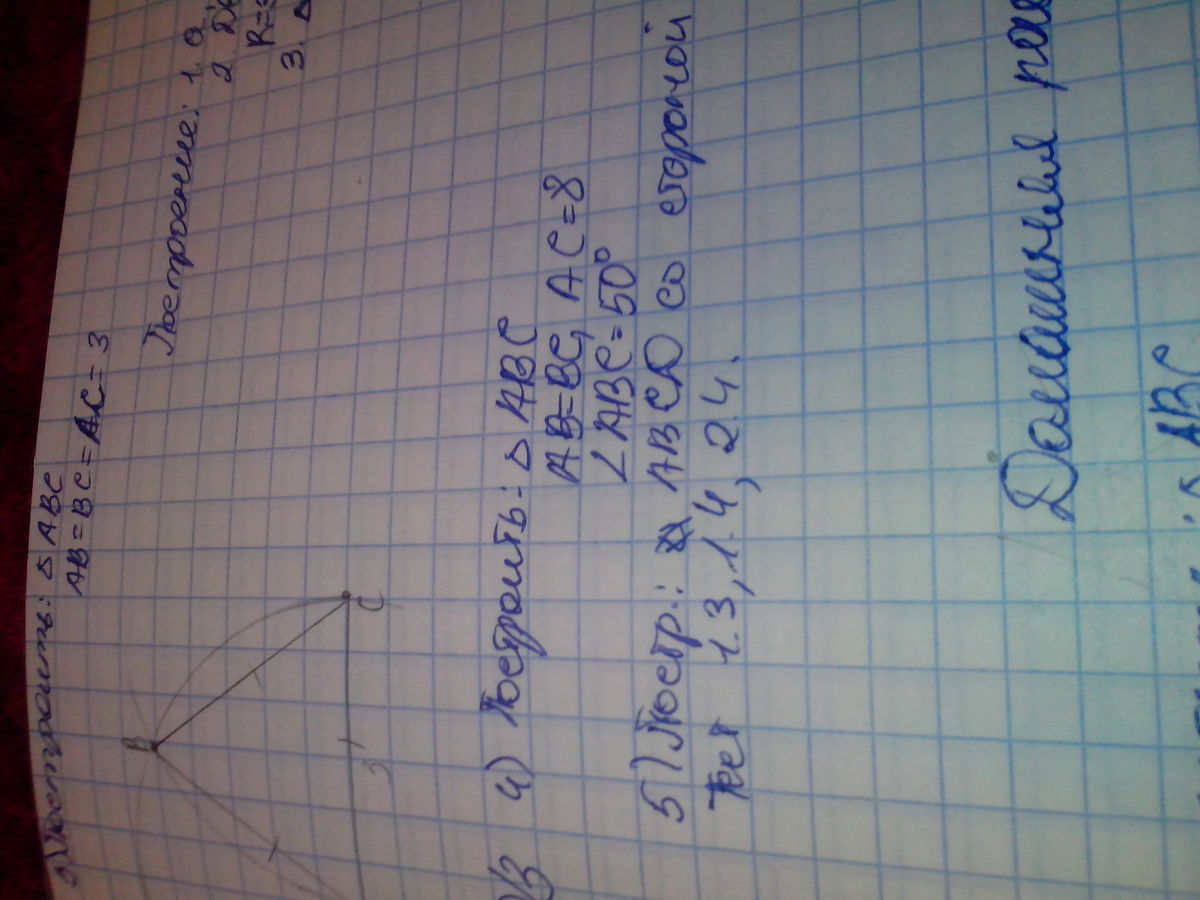 Построить: △ ABC
AB = BC = AC = 3
Построение: 1.
2.
R=
3. △
B
C
3
Д/З 4) Построить: △ ABC
AB=BC, AC=8
∠ ABC = 50°
5) Постр.: ABCD со стороной
Тест 1.3, 1.4, 2.4.
Домашняя
ABC